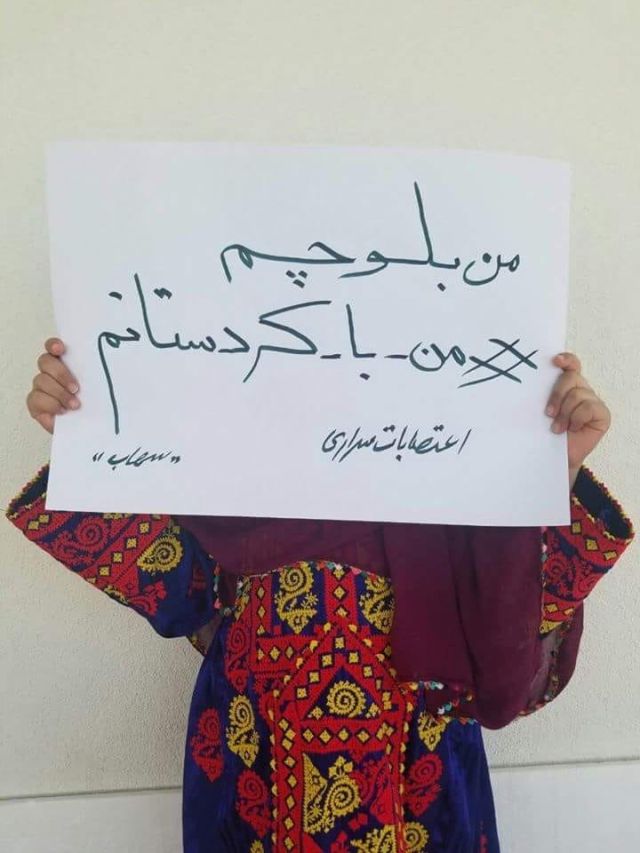 من بلوچم
#من_با_کردستانم
اعتصابات سراری
"سرهاب"